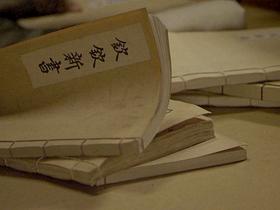 欽欽新書